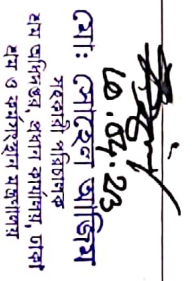 10.04.23
মোঃ সোহেল আজিম
সহকারী পরিচালক
শ্রম অধিদপ্তর, প্রধান কার্যালয়, ঢাকা
শ্রম ও কর্মসংস্থান মন্ত্রণালয়